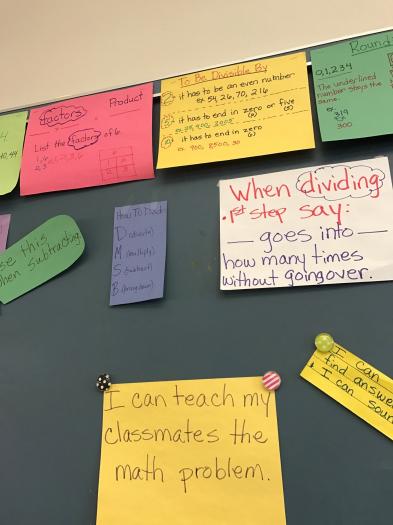 Factors
Product
List the factors of 6.
1,6
2,3
To Be Divisible By
it has to be an even number
ex. 54, 26, 70, 216
it has to end in zero or five
it has to end in zero
ex. 900, 8500, 30
Round
0,1,2,3,4
The underlined
number stays the
same.
ex.
319
300
40,44
se this
when subtracting
How To Divide
D (divide)
M (multiply)
S (subtract)
B (bring down)
When dividing
1st step say:
— goes into —
how many times
without going over.
I can
find answe
I can soun
I can teach my
classmates the
math problem.